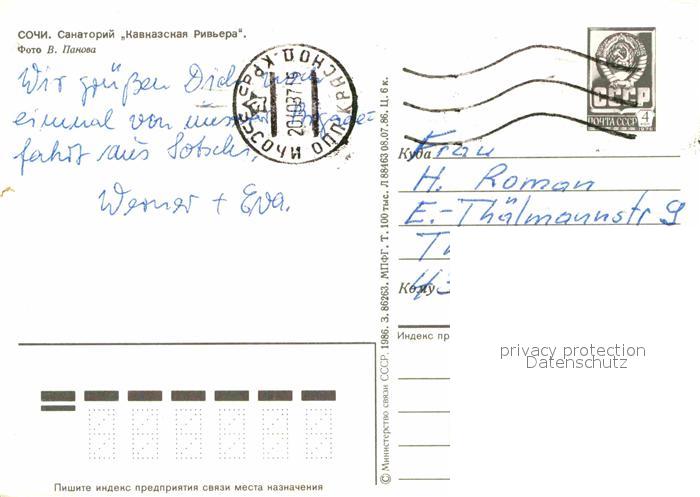 СОЧИ. Санаторий „Кавказская Ривьера“.
Фото В. Панова
Wir grüßen Dich noch
einmal von unserer Brigade-
fahrt aus Sotschi.
Werner + Eva.
СССР
ПОЧТА СССР 4
1976
Куда Frau
H. Roman
E.-Thälmannstr 9
Кому
Индекс пр
privacy protection
Datenschutz
© Министерство связи СССР, 1986. З. 86263. МПФГ. Т. 100 тыс. Л 88463 08.07.86. Ц. 6 к.
Пишите индекс предприятия связи места назначения